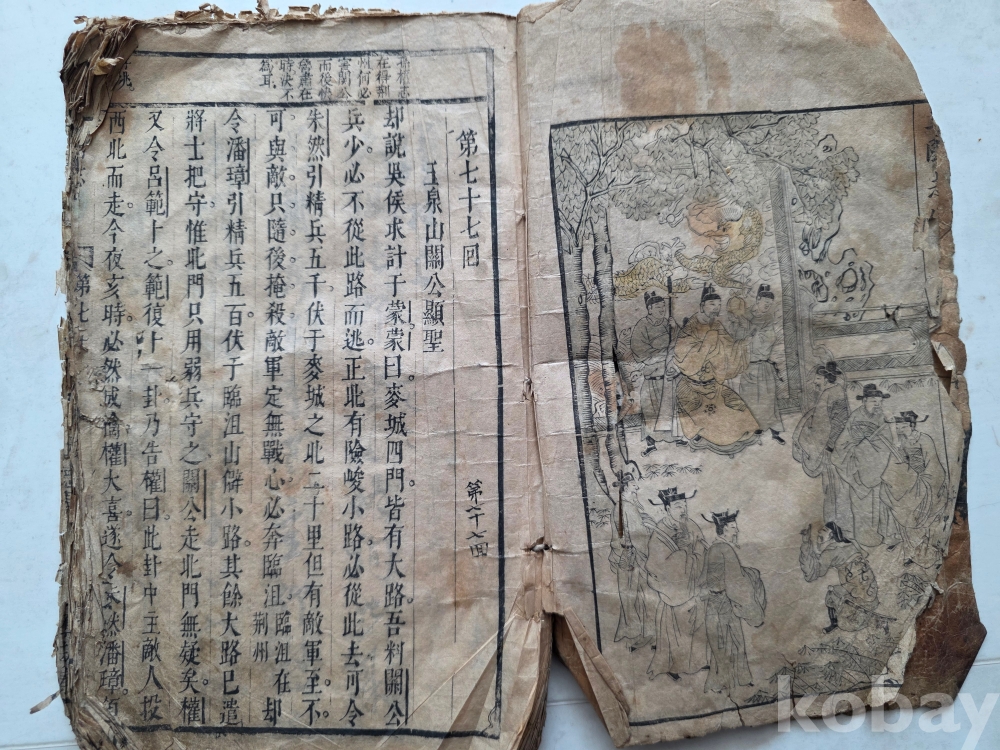 第七十七回
玉泉山關公顯聖
第六十八回
却說吳侯求計于蒙蒙曰麥城四門皆有大路吾料關公
兵少必不從此路而逃正北有險峻小路必從此去可令
朱然引精兵五千伏于麥城之北二十里但有敵軍至不
可與敵只隨後掩殺敵軍定無戰心必奔臨沮臨沮在荊州却
令潘璋引精兵五百伏于臨沮山僻小路其餘大路已遣
將士把守惟北門只用弱兵守之關公走北門無疑矣權
又令呂範卜之範復卜一卦乃告權曰此卦中主敵人投
西北而走今夜亥時必然成擒權大喜遂令朱然潘璋
而後
魯肅在
時決不
為耳
kobay